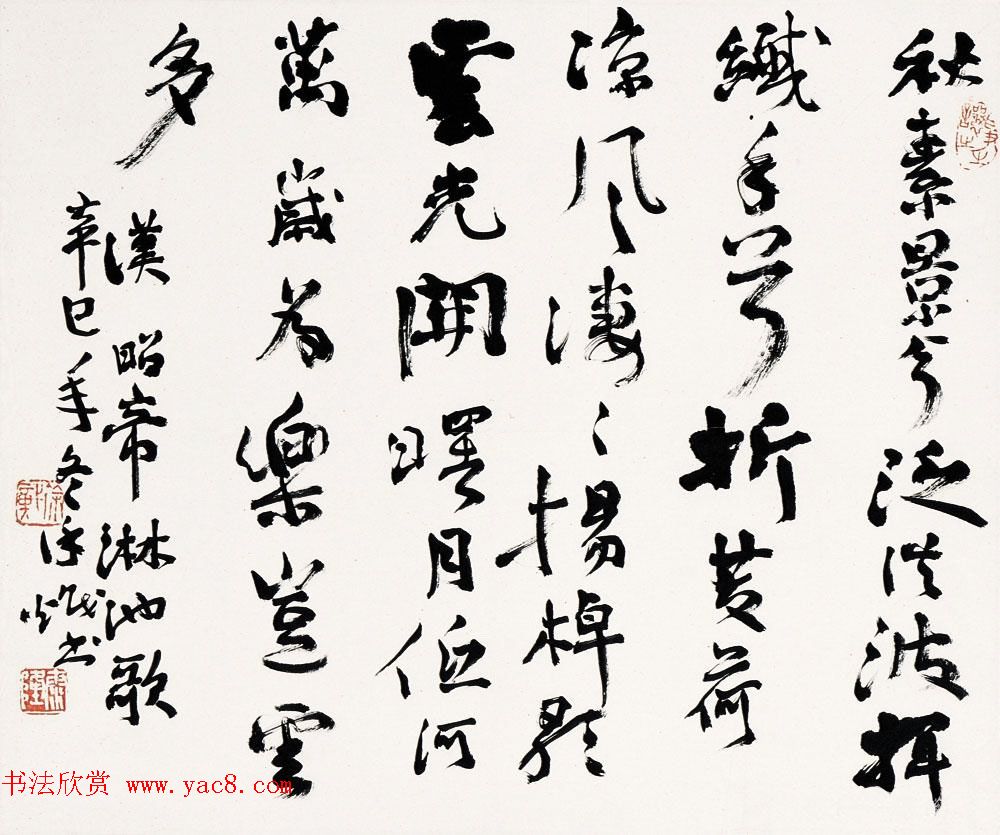 秋素景兮泛洪波揮
纖手兮折芰荷
涼風淒〻揚棹歌
雲光開曙月低河
萬歲為樂豈云
多
漢昭帝淋池歌
辛巳年冬徐熾書
书法欣赏 www.yac8.com